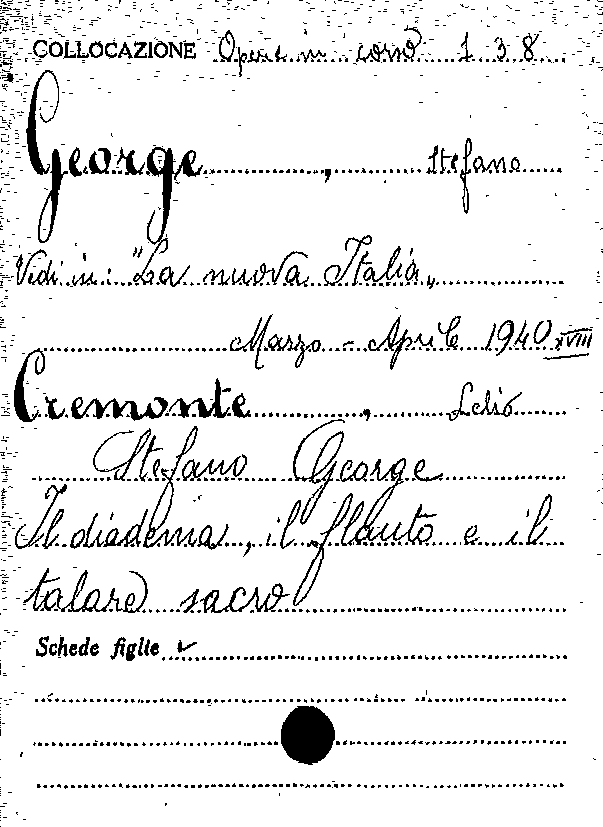 COLLOCAZIONE Opere in corso 138
George, Stefano
Vedi in: "La nuova Italia„
Marzo - Aprile 1940 XVIII
Cremonte, Lelio
Stefano George
Il diadema, il flauto e il
talare sacro
Schede figlie ✓